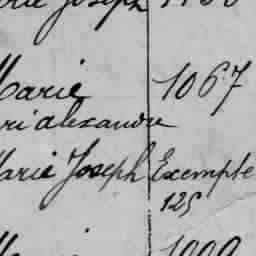 Joseph
Marie 1067
ri alexandre
Marie Joseph Exempte
125